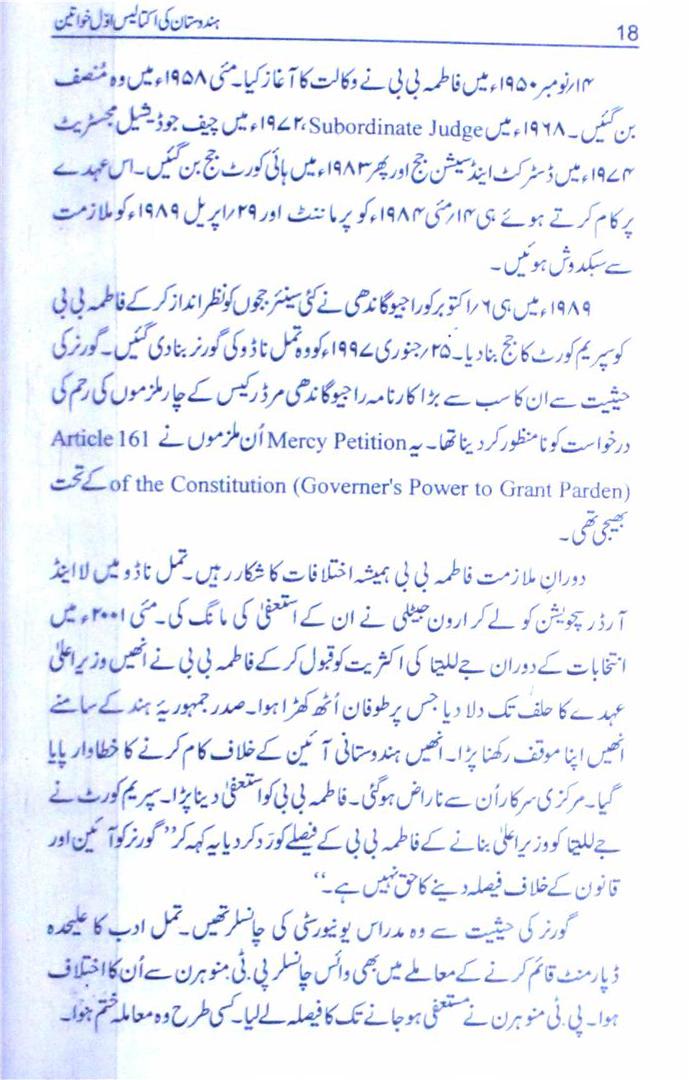 ہندوستان کی اکتالیس اوّل خواتین
18
۱۴؍نومبر ۱۹۵۰ء میں فاطمہ بی بی نے وکالت کا آغاز کیا۔ مئی ۱۹۵۸ء میں وہ مُنصف
بن گئیں۔ ۱۹۶۸ء میں Subordinate Judge، ۱۹۷۲ء میں چیف جوڈیشیل مجسٹریٹ
۱۹۷۴ء میں ڈسٹرکٹ اینڈ سیشن جج اور پھر ۱۹۸۳ء میں ہائی کورٹ جج بن گئیں۔ اس عہدے
پر کام کرتے ہوئے ہی ۱۴؍مئی ۱۹۸۴ء کو پرماننٹ اور ۲۹؍اپریل ۱۹۸۹ء کو ملازمت
سے سبکدوش ہوئیں۔
۱۹۸۹ء میں ہی ۶؍اکتوبر کو راجیو گاندھی نے کئی سینئر ججوں کو نظر انداز کر کے فاطمہ بی بی
کو سپریم کورٹ کا جج بنا دیا۔ ۲۵؍جنوری ۱۹۹۷ء کو وہ تمل ناڈو کی گورنر بنا دی گئیں۔ گورنر کی
حیثیت سے ان کا سب سے بڑا کارنامہ راجیو گاندھی مرڈر کیس کے چار ملزموں کی رحم کی
درخواست کو نامنظور کر دینا تھا۔ یہ Mercy Petition اُن ملزموں نے Article 161
of the Constitution (Governer's Power to Grant Parden) کے تحت
بھیجی تھی۔
دورانِ ملازمت فاطمہ بی بی ہمیشہ اختلافات کا شکار رہیں۔ تمل ناڈو میں لا اینڈ
آرڈر سچویشن کو لے کر ارون جیٹلی نے ان کے استعفیٰ کی مانگ کی۔ مئی ۲۰۰۱ء میں
انتخابات کے دوران جے للیتا کی اکثریت کو قبول کر کے فاطمہ بی بی نے انھیں وزیر اعلیٰ
عہدے کا حلف تک دلا دیا جس پر طوفان اُٹھ کھڑا ہوا۔ صدر جمہوریۂ ہند کے سامنے
انھیں اپنا موقف رکھنا پڑا۔ انھیں ہندوستانی آئین کے خلاف کام کرنے کا خطاوار پایا
گیا۔ مرکزی سرکار اُن سے ناراض ہو گئی۔ فاطمہ بی بی کو استعفیٰ دینا پڑا۔ سپریم کورٹ نے
جے للیتا کو وزیر اعلیٰ بنانے کے فاطمہ بی بی کے فیصلے کو رَد کر دیا یہ کہہ کر ”گورنر کو آئین اور
قانون کے خلاف فیصلہ دینے کا حق نہیں ہے۔“
گورنر کی حیثیت سے وہ مدراس یونیورسٹی کی چانسلر تھیں۔ تمل ادب کا علیٰحدہ
ڈپارمنٹ قائم کرنے کے معاملے میں بھی وائس چانسلر پی. ٹی. منوہرن سے اُن کا اختلاف
ہوا۔ پی. ٹی منوہرن نے مستعفی ہو جانے تک کا فیصلہ لے لیا۔ کسی طرح وہ معاملہ ختم ہوا۔